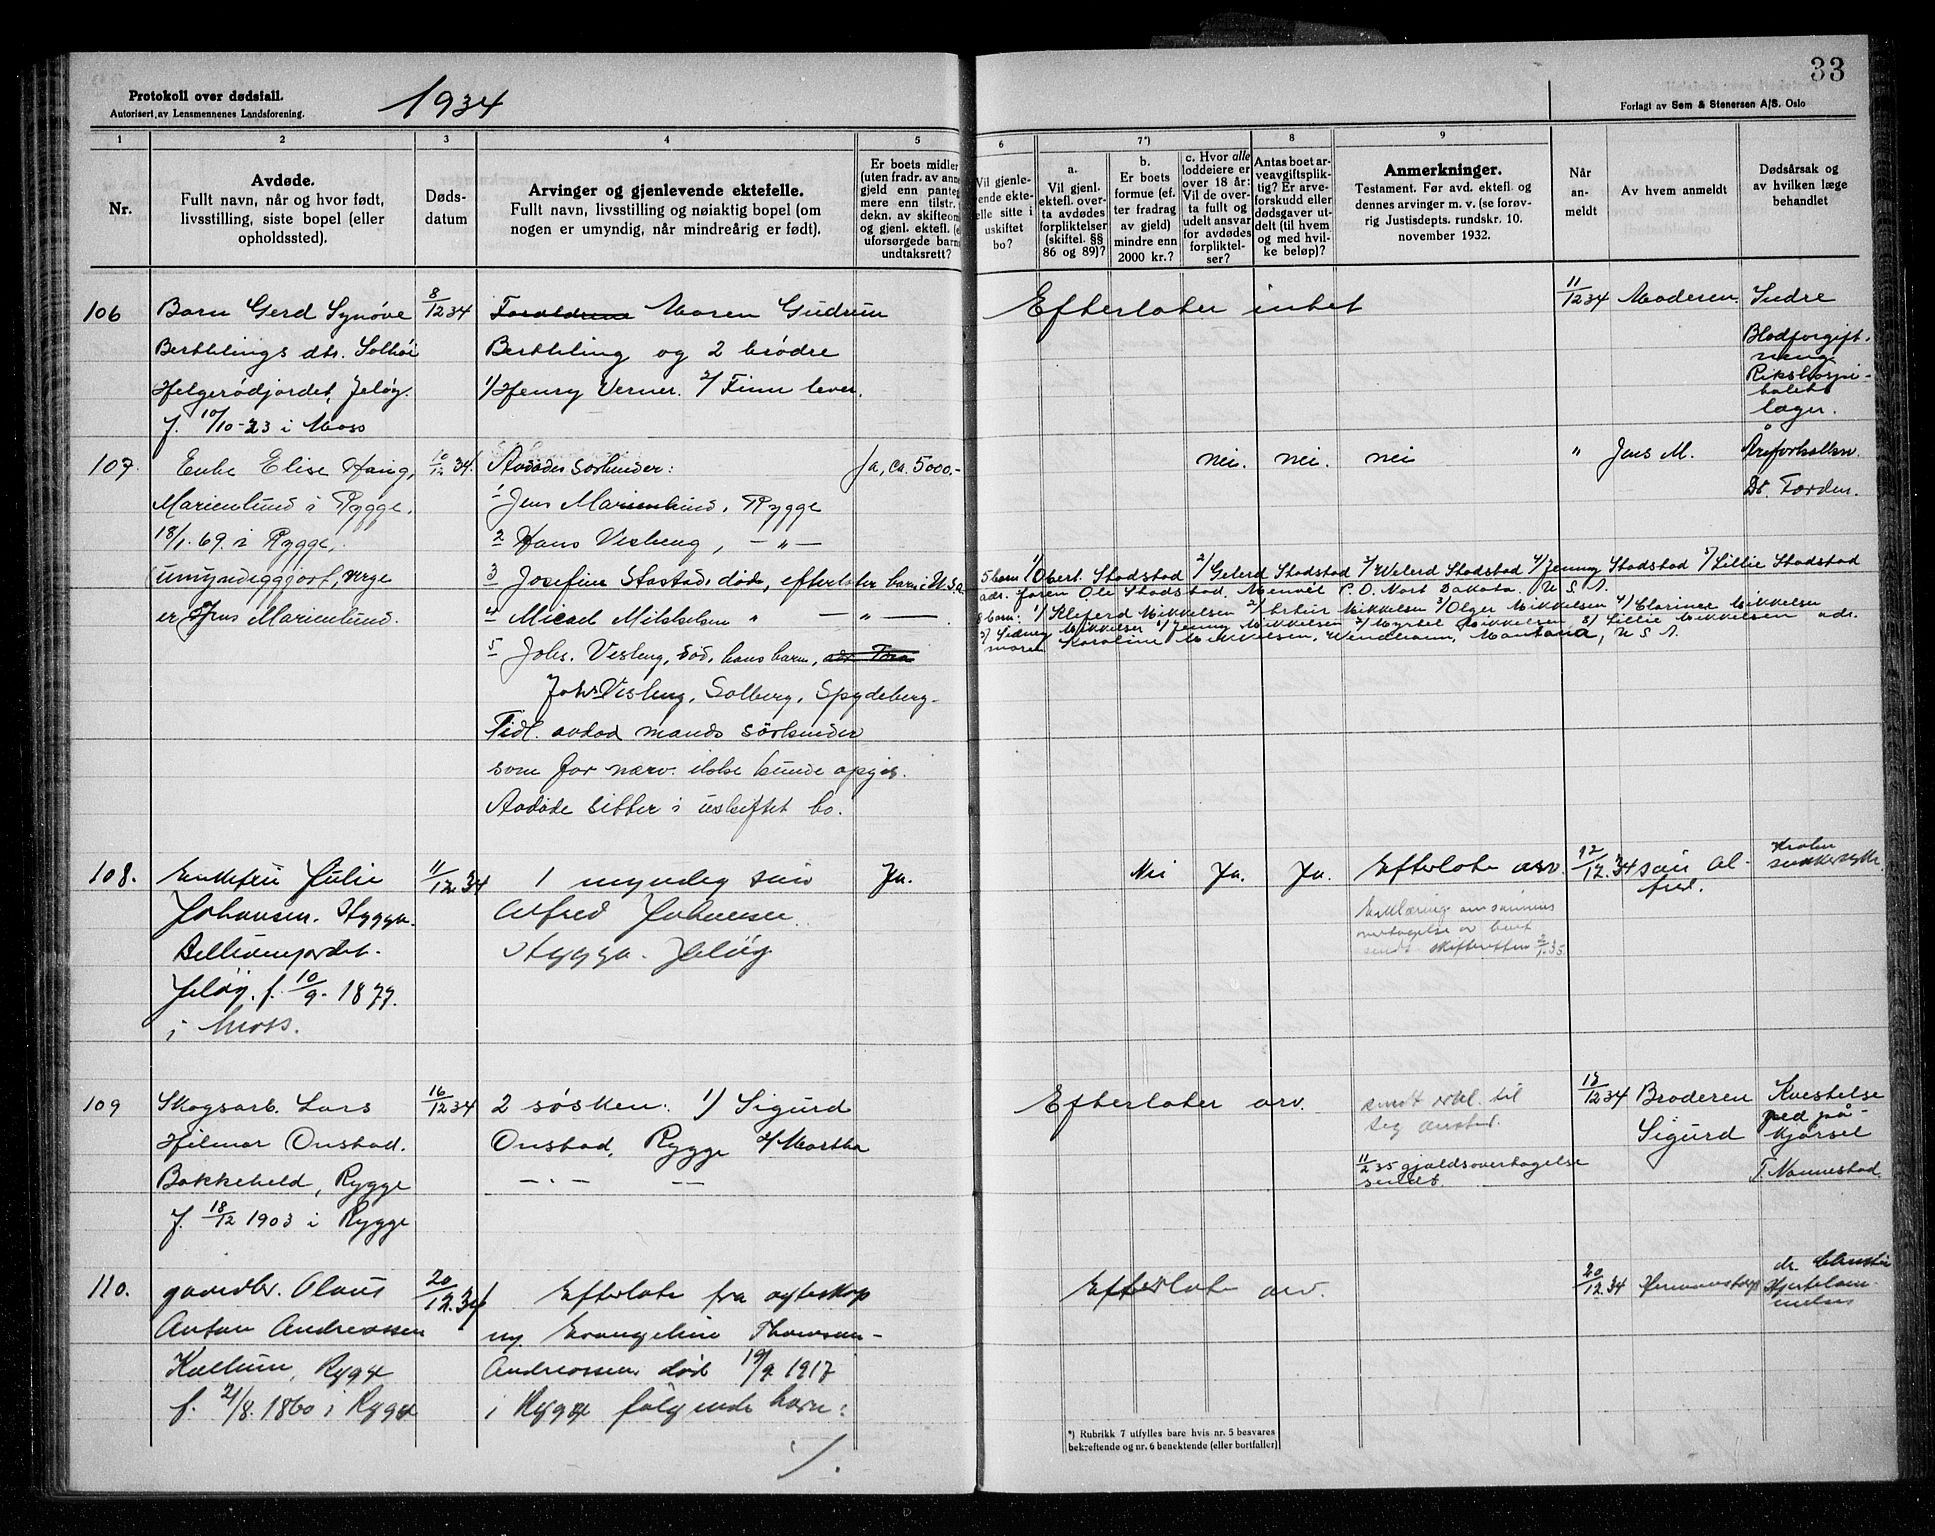 33
Protokoll over dødsfall.
Autorisert av Lensmennenes Landsforening.
1934
Forlagt av Sem & Stenersen A/S. Oslo
1 2 3 4 5 6 7*) 8 9
Nr.
Avdøde.
Fullt navn, når og hvor født,
livsstilling, siste bopel (eller
opholdssted).
Døds-
datum
Arvinger og gjenlevende ektefelle.
Fullt navn, livsstilling og nøiaktig bopel (om
nogen er umyndig, når mindreårig er født).
Er boets midler
(uten fradr. av ann
gjeld enn pante
mere enn tilstr.
dekn. av skifteom
og gjenl. ektefl. (e
uforsørgede barn
undtaksrett?
Vil gjenle-
vende ekte-
elle sitte i
uskiftet
bo?
a.
Vil gjenl.
ektefl. over-
ta avdødes
forpliktelser
(skiftel. §§
86 og 89)?
b.
Er boets
formue (ef-
ter fradrag
av gjeld)
mindre enn
2000 kr.?
c. Hvor alle
loddeiere er
over 18 år:
Vil de over-
ta fullt og
udelt ansvar
for avdødes
forpliktel-
ser?
Antas boet ar-
veavgiftsplik-
tig? Er arve-
forskudd eller
dødsgaver ut-
delt (til hvem
og med hvil-
ke beløp)?
Anmerkninger.
Testament. Før avd. ektefl. og
dennes arvinger m. v. (se forøv-
rig Justisdepts. rundskr. 10.
november 1932.
Når
an-
meldt
Av hvem anmeldt
Dødsårsak og
av hvilken læge
behandlet
106
Barn Gerd Synøve
Berthlings dtr. Solhøi
Helgerødjordet, Jeløy.
f. 10/10-23 i Moss
8/12 34
Foreldrene Moren Gudrun
Berthling og 2 brødre
1/ Henry Verner. 2/ Finn lever.
Efterlater intet
11/12 34 Moderen
Indre
Blodforgift-
ning
Rikshospi-
talets
læger.
107.
Enke Elise Haug,
Marienlund i Rygge,
18/1. 69. i Rygge,
umyndiggjort, verge
er Jens Marienlund.
10/12 34.
Avdødes søskender:
1 Jens Marienlund, Rygge
2 Hans Visteng, — " —
3 Josefine Stastad, død, efterlater barn i U.S.A
4 Micael Mikkelsen " — " —
5 Johs. Visteng, død, hans barn,
Johs Visteng, Solberg, Spydeberg.
Tidl. avdød mands søskender
som for nærv. ikke kunde opgis.
Avdøde sitter i uskiftet bo.
Ja, ca. 5000,-
nei. nei. nei
5 barn 1/ Obert Stadstad 2/ Gelerd Stadstad 3/ Welerd Stadstad 4/ Jenny Stadstad 5/ Lillie Stadstad
adr. faren Ole Stadstad, P.O. Nort Dakota. U.S.A.
8 barn: 1/ Kleferd Mikkelsen 2/ Artur Mikkelsen 3/ Olger Mikkelsen 4/ Clarince Mikkelsen
5/ Sidney Mikkelsen 1/ Jenny Mikkelsen 2/ Myrtel Mikkelsen, 3/ Lillie Mikkelsen adr.
moren Karoline Mikkelsen, Montana, U.S.A.
" Jens M.
Åreforkalkn.
Dr. Torden.
108.
Enkefru Julie
Johansen, Hygga.
Jeløy. f. 10/9. 1877.
i Moss.
11/12.34
1 myndig søn
Alfred Johansen
Hygga. Jeløy
Ja.
Nei Ja. Ja.
Efterlate arv.
Erklæring om sønnens
overtagelse av boet
sendt skifteretten 2/1.35
12/12.34 søn Al-
fred.
sukkersyke.
109
Skogsarb. Lars
Hilmar Onstad.
Bakkeheld, Rygge
f. 18/12 1903 i Rygge
16/12 34
2 søsken: 1/ Sigurd
Onstad, Rygge 2/ Martha
— . — — —
Efterlater arv.
sendt erkl. til
11/2 35 gjældsovertagelse
sendt.
17/12 34 Broderen
Sigurd
Kvestelse
ved på-
kjørsel
T. Nannestad.
110.
gaardbr. Olaus
Anton Andreassen
Kallum, Rygge
f. 2/8. 1860 i Rygge
20/12.34
Efterlate fra egteskap
m Evangeline Thomsen-
Andreassen død 19/9 1917
i Rygge følgende barn:
./.
Efterlate arv.
20/12.34
dr.
Hjertelam-
melse
*) Rubrikk 7 utfylles bare hvis nr. 5 besvares
bekreftende og nr. 6 benektende (eller bortfaller)